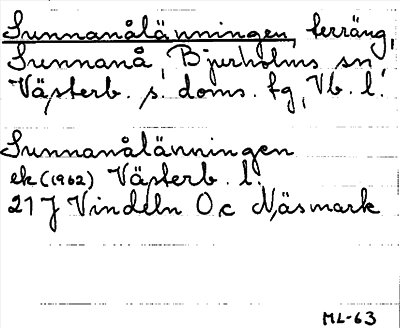 Sunnanålänningen, terräng,
Sunnanå, Bjurholms sn
Västerb. s. doms. tg, Vb. l.
Sunnanålänningen
ek (1962) Västerb. l.
21 J Vindeln 0c Näsmark
ML-63